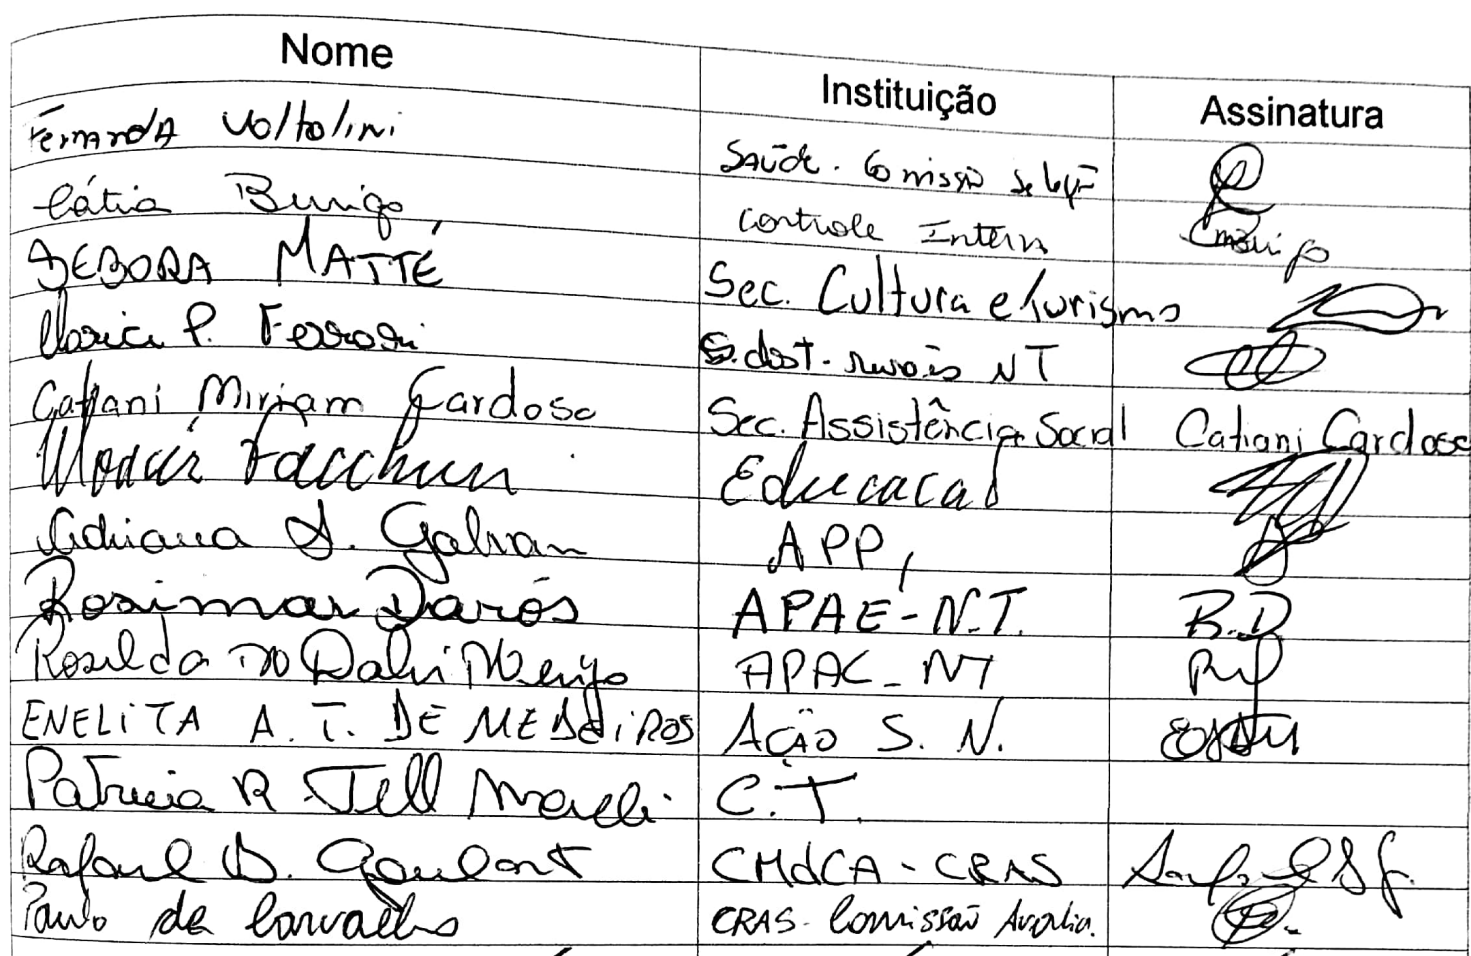 Nome Instituição Assinatura
Fernanda Voltolini Saúde - Comissão Seleção
Cátia Burigo Controle Interno CmBurigo
DEBORA MATTÉ Sec. Cultura e turismo
P. Ferrari S. dos t. rurais NT
Catiani Miriam Cardoso Sec. Assistência Social Catiani Cardoso
Moacir Facchin Educacao
Adriana S. Galvan APP,
Rosimar Darós APAE-N.T. R.D
Rosilda Dalri APAE - NT
ENELITA A. T. DE MEDEIROS AÇÃO S. N.
Patricia R Tell C.T.
Rafael D. Goulart CMdCA - CRAS
de Carvalho CRAS - Comissão Avalia.